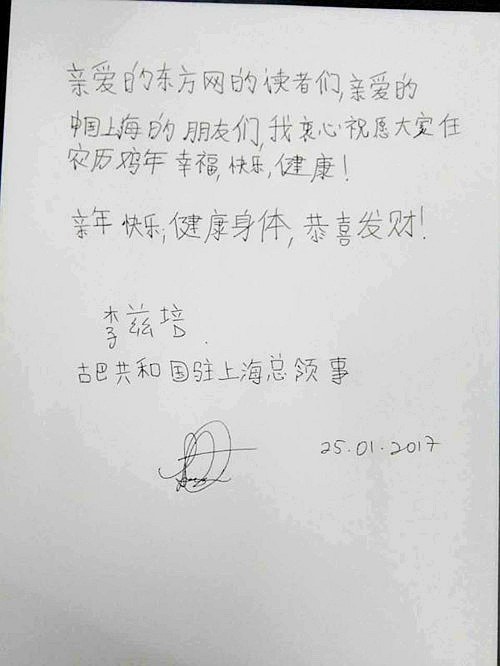 亲爱的东方网的读者们,亲爱的
中国上海的朋友们,我衷心祝愿大家在
农历鸡年幸福,快乐,健康!
亲年快乐,健康身体,恭喜发财!
李兹培.
古巴共和国驻上海总领事
25.01.2017